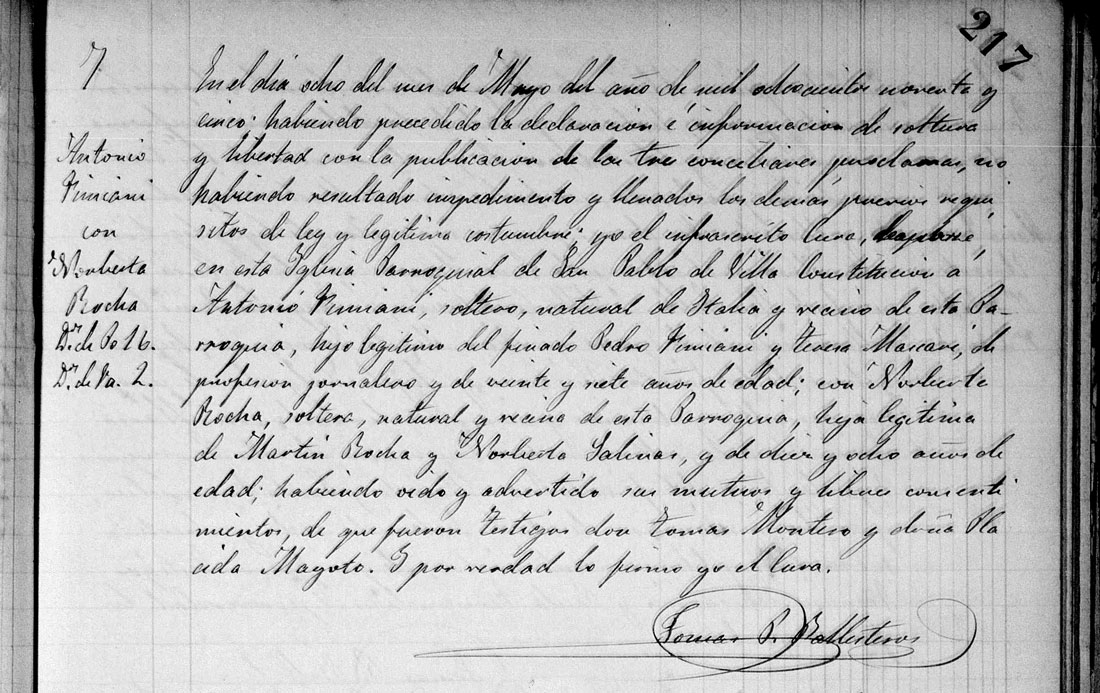 217
7
Antonio
Vimiani
con
Norberta
Rocha
Dr. de Po 16.
Dr. de Va. 2.
En el dia ocho del mes de Mayo del año de mil ochocientos noventa y
cinco: habiendo precedido la declaracion é informacion de soltura
y libertad con la publicacion de las tres conciliares proclamas, no
habiendo resultado impedimento y llenados los demás previos requi
sitos de ley y legitima costumbre; yo el infrascrito Cura, desposé,
en esta Iglesia Parroquial de San Pablo de Villa Constitucion á
Antonio Vimiani, soltero, natural de Italia y vecino de esta Pa-
rroquia, hijo legitimo del finado Pedro Vimiani y Teresa Mascari, de
profesion jornalero y de veinte y siete años de edad; con Norberta
Rocha, soltera, natural y vecina de esta Parroquia, hija legitima
de Martin Rocha y Norberta Salinas, y de diez y ocho años de
edad; habiendo oido y advertido sus mutuos y libres consenti
mientos, de que fueron testigos don Tomas Montero y doña Pla
cida Mayoto. I por verdad lo firmo yo el Cura.
Tomas P. Ballesteros